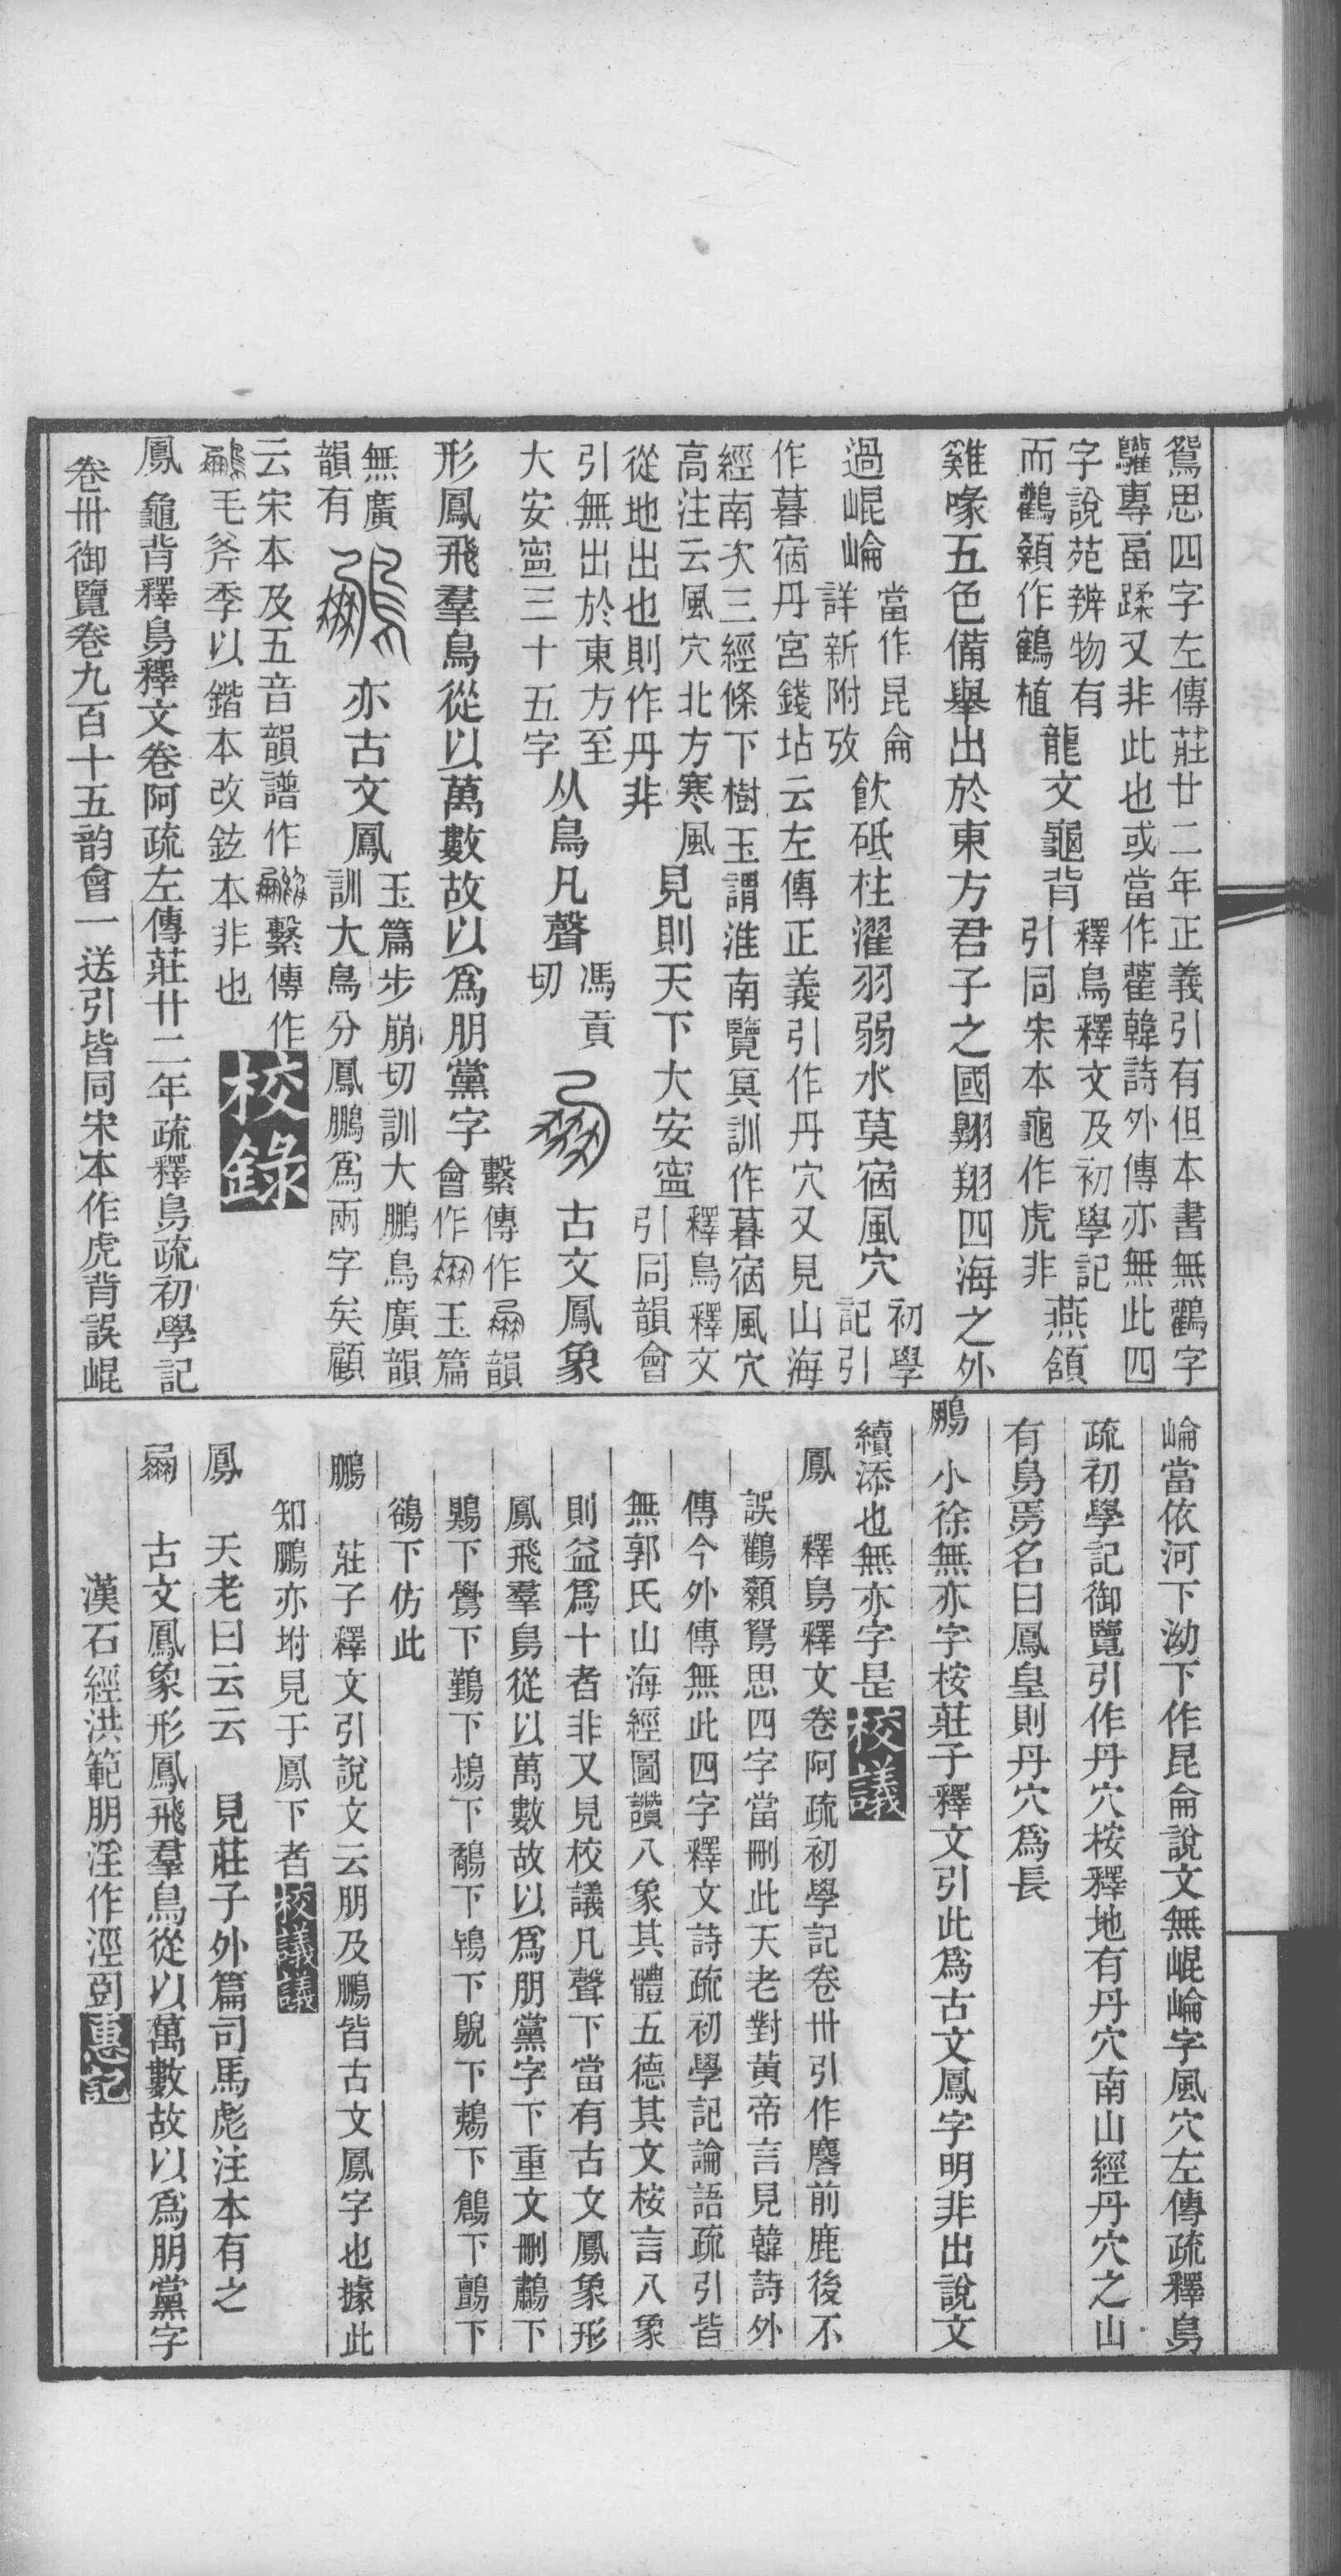 鴛思四字左傳莊廿二年正義引有但本書無鸛字
鸛專畐蹂又非此也或當作雚韓詩外傳亦無此四
字說苑辨物有
而鸛顙作鶴植
龍文龜背
釋鳥釋文及初學記
引同宋本龜作虎非
燕頷
雞喙五色備舉出於東方君子之國翺翔四海之外
過崐崘
當作昆侖
詳新附攷
飮砥柱濯羽弱水莫宿風穴
初學
記引
作暮宿丹宮錢坫云左傳正義引作丹穴又見山海
經南次三經條下樹玉謂淮南覽冥訓作暮宿風穴
高注云風穴北方寒風
從地出也則作丹非
見則天下大安寍
釋鳥釋文
引同韻會
引無出於東方至
大安寍三十五字
从鳥凡聲
馮貢
切
古文鳳象
形鳳飛羣鳥從以萬數故以爲朋黨字
繫傳作
韻
會作
玉篇
無廣
韻有
亦古文鳳
玉篇步崩切訓大鵬鳥廣韻
訓大鳥分鳳鵬爲兩字矣顧
云宋本及五音韻譜作
繫傳作
毛斧季以鍇本改鉉本非也
校錄
鳳 龜背釋鳥釋文卷阿疏左傳莊廿二年疏釋鳥疏初學記
卷卅御覽卷九百十五韵會一送引皆同宋本作虎背誤崐
崘當依河下泑下作昆侖說文無崐崘字風穴左傳疏釋鳥
疏初學記御覽引作丹穴桉釋地有丹穴南山經丹穴之山
有鳥焉名曰鳳皇則丹穴爲長
鵬 小徐無亦字桉莊子釋文引此爲古文鳳字明非出說文
續添也無亦字是
校議
鳳 釋鳥釋文卷阿疏初學記卷卅引作麐前鹿後不
誤鸛顙鴛思四字當刪此天老對黃帝言見韓詩外
傳今外傳無此四字釋文詩疏初學記論語疏引皆
無郭氏山海經圖讚八象其體五德其文桉言八象
則益爲十者非又見校議凡聲下當有古文鳳象形
鳳飛羣鳥從以萬數故以爲朋黨字下重文刪鷫下
鵬 莊子釋文引說文云朋及鵬皆古文鳳字也據此
知鵬亦坿見于鳳下者
校議議
鳳 天老曰云云 見莊子外篇司馬彪注本有之
古文鳳象形鳳飛羣鳥從以萬數故以爲朋黨字
漢石經洪範朋淫作
惠記